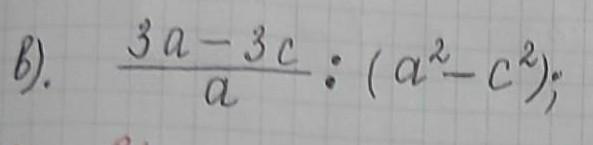 в). (3a - 3c)/a : (a² - c²);